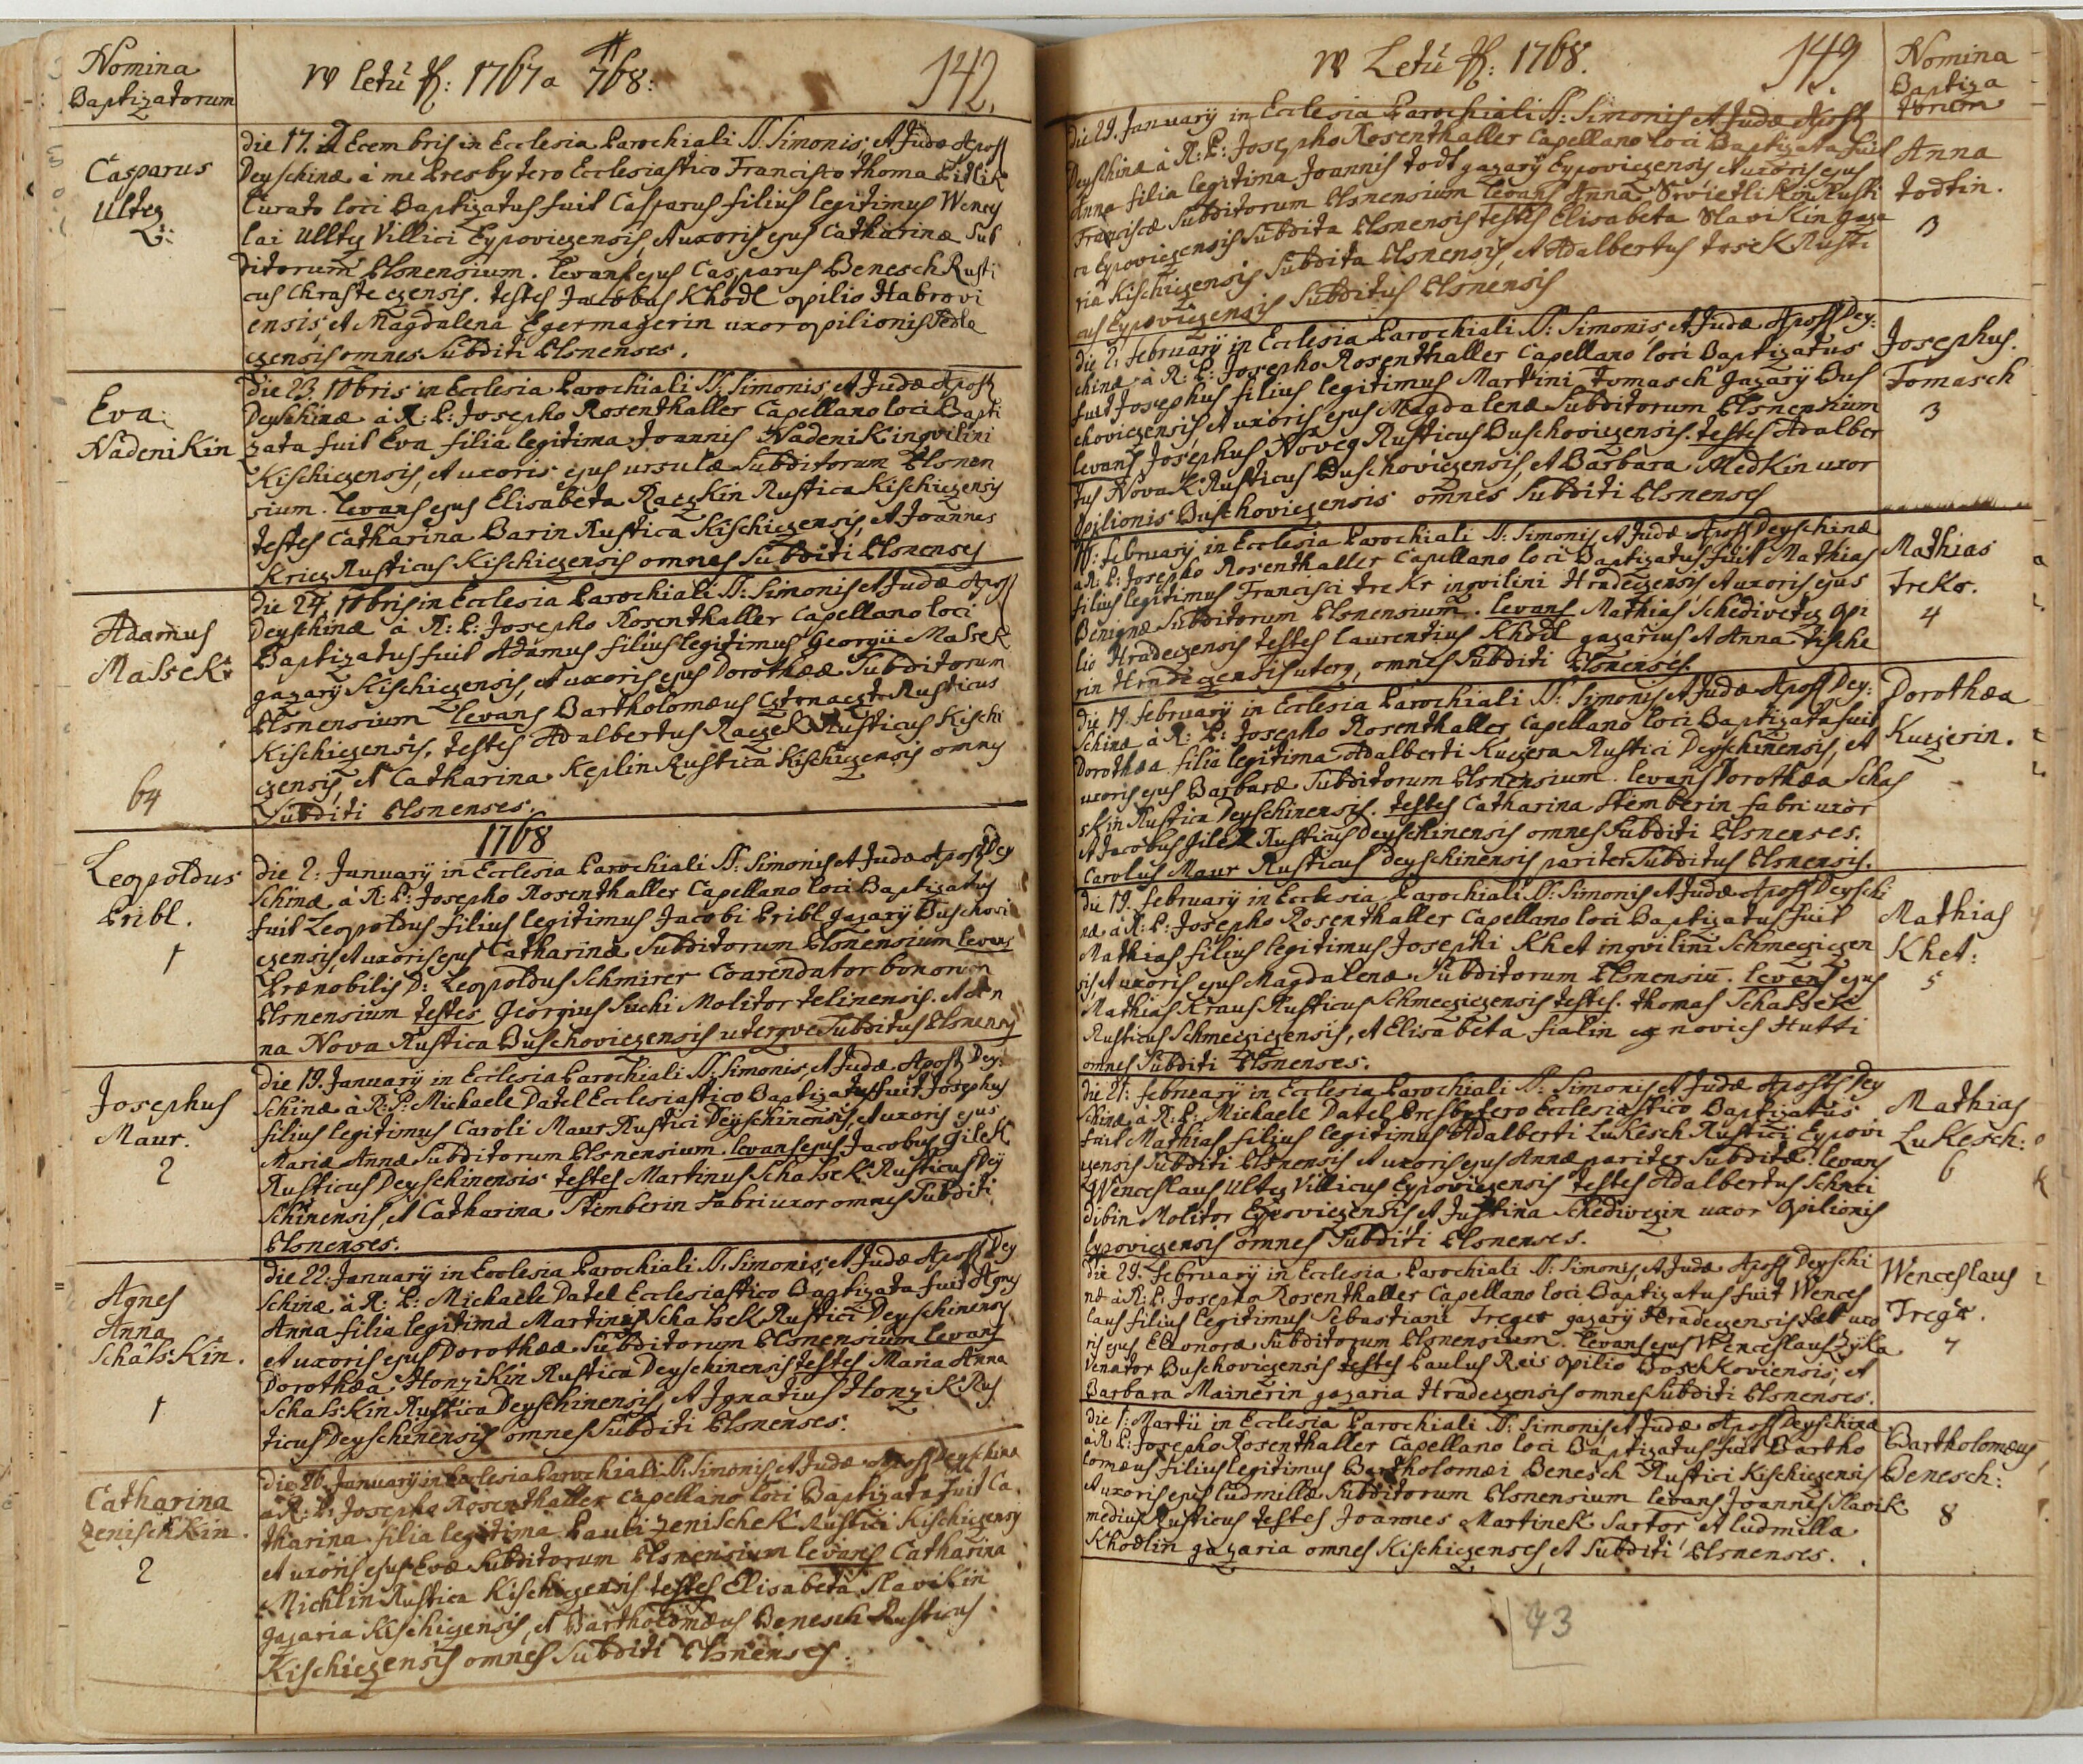 Nomina
Baptizatorum
w letu 1767 a 768:
142.
Casparus
Ultcz
Die 17. in Ecclesia Parochiali SS: Simonis, et Judæ Apost
Deyschinæ à me Presbytero Ecclesiastico Francisco Thoma
Curato loci Baptizatus fuit Casparus filius legitimus Wences
lai Ulltcz Villici Eypoviczensis, et uxoris ejus Catharinæ Sub
ditorum Plsnensium. levans ejus Casparus Benesch Rusti
cus Chrasteczensis. testes Jacobus Khodl opilio Habrovi
ensis, et Magdalena Egermayerin uxor opilionis Sedle
czensis omnes Subditi Plsnenses.
Eva
Nadenikin
Die 23. 10bris in Ecclesia Parochiali SS: Simonis, et Judæ Apost
Deyschinæ à R: P: Josepho Rosenthaller Capellano loci Bapti
zata fuit Eva filia legitima Joannis Nadenik inqvilini
Kischiczensis, et uxoris ejus Ursulæ Subditorum Plsnen
sium. levans ejus Elisabeta Raczkin Rustica Kischiczensis
testes Catharina Barin Rustica Kischiczensis, et Joannes
Kriez Rusticus Kischiczensis omnes Subditi Plsnenses
Adamus
Malsek
64
Die 24. 10bris in Ecclesia Parochiali SS: Simonis et Judæ Apost
Deyschinæ à R: P: Josepho Rosenthaller Capellano loci
Baptizatus fuit Adamus filius legitimus Georgii Malsek
gazarÿ Kischiczensis, et uxoris ejus Dorothææ Subditorum
Plsnensium levans Bartholomæus Rusticus
Kischiczensis, testes Adalbertus Raczek Rusticus Kischi
czensis, et Catharina Keplin Rustica Kischiczensis omnes
Subditi Plsnenses.
1768
Leopoldus
Pribl.
1
Die 2: Januarÿ in Ecclesia Parochiali SS: Simonis et Judæ Apost Dey
schinæ à R: P: Josepho Rosenthaller Capellano loci Baptizatus
fuit Leopoldus filius legitimus Jacobi Pribl gazarÿ Buschovi
czensis, et uxoris ejus Catharinæ Subditorum Plsnensium levans
Prænobilis D: Leopoldus Schmirer Conrendator bonorum
Plsnensium testes Georgius Suchi Molitor telinensis. et An
na Nova Rustica Buschoviczensis uterqve Subditus Plsnensis
Josephus
Maur.
2
Die 19. Januarÿ in Ecclesia Parochiali SS: Simonis, et Judæ Apost Dey:
schinæ à R: P: Michaele Datel Ecclesiastico Baptizatus fuit Josephus
filius legitimus Caroli Maur Rustici Deyschinensis, et uxoris ejus
Mariæ Annæ Subditorum Plsnensium. levans ejus Jacobus Gilek
Rusticus Deyschinensis testes Martinus Schalsek Rusticus Deÿ
schinensis, et Catharina Stemberin Fabri uxor omnes Subditi
Plsnenses.
Agnes
Anna
Schalskin.
1
Die 22. Januarÿ in Ecclesia Parochiali SS. Simonis, et Judæ Apost Dey
schinæ à R: P: Michaele Datel Ecclesiastico Baptizata fuit Agnes
Anna filia legitima Martini Schalsek Rustici Deyschinensis
et uxoris ejus Dorothææ Subditorum Plsnensium levans
Dorothæa Honzikin Rustica Deyschinensis testes Maria Anna
Schalskin Rustica Deyschinensis, et Ignatius Honzik Rus
ticus Deyschinensis omnes Subditi Plsnenses.
Catharina
Zenischkin.
2
Die 26. Januarÿ in Ecclesia Parochiali SS. Simonis et Judæ Apost Deyschinæ
à R: P: Josepho Rosenthaller Capellano loci Baptizata fuit Ca
tharina filia legitima Pauli Zenischek Rustici Kischiczensis
et uxoris ejus Evæ Subditorum Plsnensium levans Catharina
Michlin Rustica Kischiczensis testes Elisabeta Slavikin
gazaria Kischiczensis, et Bartholomæus Benesch Rusticus
Kischiczensis omnes Subditi Plsnenses.
w Letu 1768.
149.
Nomina
Baptiza
torum
Die 29. Januarÿ in Ecclesia Parochiali SS: Simonis et Judæ Apost
Deyschinæ à R: P: Josepho Rosenthaller Capellano loci Baptizata fuit
Anna filia legitima Joannis todt gazarÿ Eypoviczensis et uxoris ejus
Franciscæ Subditorum Plsnensium levans Anna Swietlikin Rusti
ca Eypoviczensis Subdita Plsnensis testes Elisabeta Slavikin gaza
ria Kischiczensis Subdita Plsnensis, et Adalbertus Rusti
cus Eypoviczensis Subditus Plsnensis
Anna
todtin.
3
Die 2. Februarÿ in Ecclesia Parochiali SS: Simonis, et Judæ Apost Dey:
schinæ à R: P: Josepho Rosenthaller Capellano loci Baptizatus
fuit Josephus filius legitimus Martini Tomasch gazarÿ Bus
choviczensis, et uxoris ejus Magdalenæ Subditorum Plsnensium
levans Josephus Rusticus Buschoviczensis. testes Adalber
tus Novak Rusticus Buschoviczensis, et Barbara Medkin uxor
Opilionis Buschoviczensis omnes Subditi Plsnenses
Josephus.
Tomasch
3
Februarÿ in Ecclesia Parochiali SS: Simonis et Judæ Apost Deyschinæ
à R: P: Josepho Rosenthaller Capellano loci Baptizatus fuit Mathias
filius legitimus Francisci trekr inqvilini Hradeczensis, et uxoris ejus
Benignæ Subditorum Plsnensium. levans Mathias Schedivetcz opi
lio Hradeczensis testes Laurentius Khodl gazarius et Anna tische
rin Hradeczensis uterq, omnes Subditi Plsnenses.
Mathias
trekr.
4
Die 19. Februarÿ in Ecclesia Parochiali SS: Simonis, et Judæ Apost Dey:
schinæ à R: P: Josepho Rosenthaller Capellano loci Baptizata fuit
Dorothæa filia legitima Adalberti Kuczera Rustici Deyschinensis, et
uxoris ejus Barbaræ Subditorum Plsnensium. levans Dorothæa Schas
skin Rustica Deyschinensis. testes Catharina Stemberin fabri uxor
et Jacobus Jilek Rusticus Deyschinensis omnes Subditi Plsnenses.
Carolus Maur Rusticus deyschinensis pariter Subditus Plsnensis.
Dorothæa
Kuczerin.
Die 19. Februarÿ in Ecclesia Parochiali SS: Simonis et Judæ Apost Deyschi
næ à R: P: Josepho Rosenthaller Capellano loci Baptizatus fuit
Mathias filius legitimus Josephi Khet inqvilini Schmecziczen
sis, et uxoris ejus Magdalenæ Subditorum Plsnensiu. levans ejus
Mathias Kraus Rusticus Schmecziczensis testes. thomas Schalsek
Rusticus Schmecziczensis, et Elisabeta fialin ex novies Hutti
omnes Subditi Plsnenses.
Mathias
Khet:
5
Die 21. february in Ecclesia Parochiali SS: Simonis, et Judæ Aposts Dey
schinæ, à R: P: Michaele Datel Presbytero Ecclesiastico Baptizatus
fuit Mathias filius legitimus Adalberti Lukesch Rustici Eypovi
czensis Subditi Plsnensis et uxoris ejus Annæ pariter Subditæ. levans
Wenceslaus Ultcz Villicus Eypoviczensis testes Adalbertus Schnei
dibin Molitor Eypoviczensis, et Justina Schediveczin uxor Opilionis
Eypoviczensis omnes Subditi Plsnenses.
Mathias
Lukesch:
6
Die 29. Februarÿ in Ecclesia Parochiali SS: Simonis, et Judæ Apost Deyschi
næ à R: P: Josepho Rosenthaller Capellano loci Baptizatus fuit Wences
laus filius legitimus Sebastiani Treger gazarÿ Hradeczensis et uxo
ris ejus Eleonoræ Subditorum Plsnensium. levans ejus Wenceslaus Zÿka
Venator Buschoviczensis testes Paulus Reis opilio Boschkoviensis, et
Barbara Mainerin gazaria Hradeczensis omnes Subditi Plsnenses.
Wenceslaus
Tregr.
7
Die 1: Martii in Ecclesia Parochiali SS: Simonis et Judæ Apost Deyschinæ
à R: P: Josepho Rosenthaller Capellano loci Baptizatus fuit Bartho
lomæus filius legitimus Bartholomæi Benesch Rustici Kischiczensis
et uxoris ejus Ludmillæ Subditorum Plsnensium levans Joannes Slavik
medius Rusticus testes Joannes Martinek Sartor et Ludmilla
Khodlin gazaria omnes Kischiczenses, et Subditi Plsnenses.
Bartholomæus
Benesch:
8
93